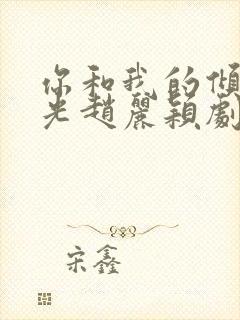 你和我的傾
光趙麗穎劇
宋鑫